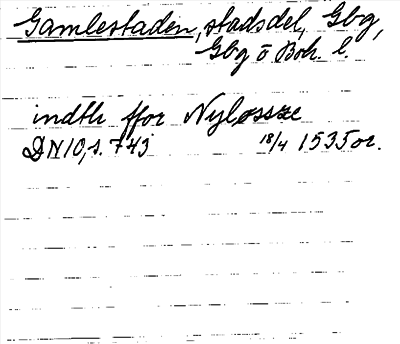 Gamlestaden, stadsdel, Gbg,
Gbg o Boh. l.
indth ffor Nyløssze
DN10, s. 743 18/4 1535 or.